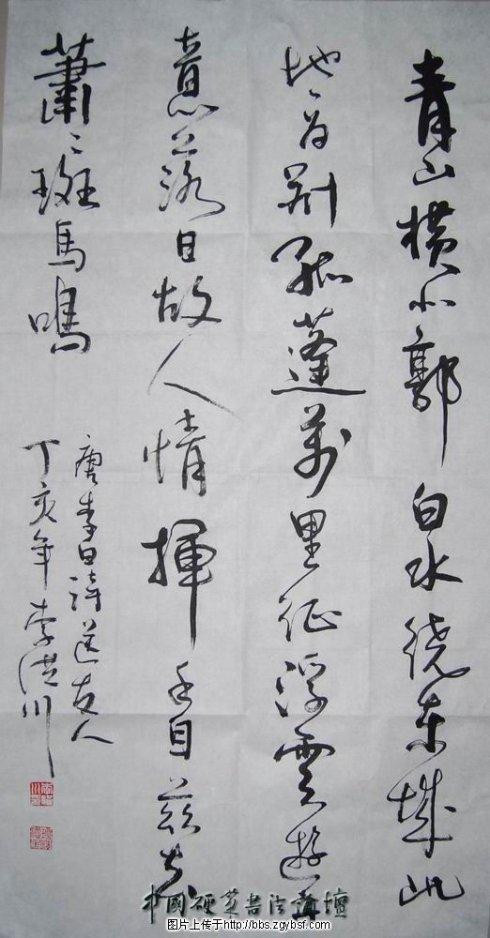 青山横北郭白水绕东城此
地一为别孤蓬萬里征浮雲遊子
意落日故人情揮手自兹去
蕭〻斑馬鳴
唐李白詩送友人
丁亥年李洪川
中國硬筆書法論壇
图片上传于http://bbs.zgybsf.com